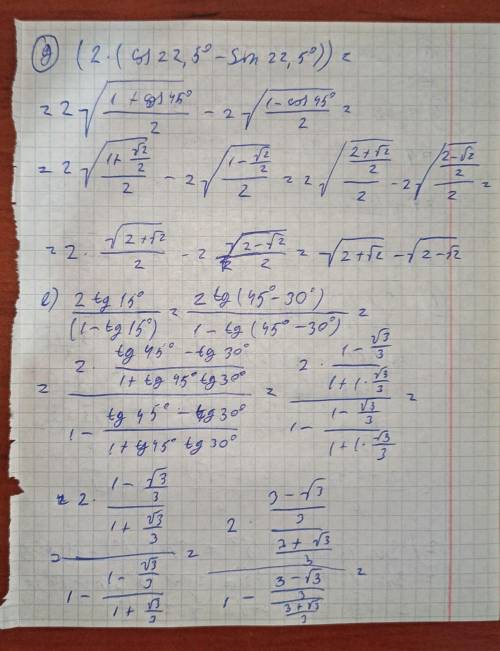 д) (2·(cos 22,5° − Sin 22,5°)) =
= 2√((1 + cos 45°)/2) − 2√((1 − cos 45°)/2) =
= 2√((1 + √2/2)/2) − 2√((1 − √2/2)/2) = 2√(((2+√2)/2)/2) − 2√(((2−√2)/2)/2) =
= 2 · √(2+√2)/2 − 2 √(2−√2)/2 = √(2+√2) − √(2−√2)
е) (2 tg 15°)/(1 − tg 15°) = (2 tg (45° − 30°))/(1 − tg (45° − 30°)) =
= (2 · (tg 45° − tg 30°)/(1 + tg 45° tg 30°))/(1 − (tg 45° − tg 30°)/(1 + tg 45° tg 30°)) = (2 · (1 − √3/3)/(1 + 1 · √3/3))/(1 − (1 − √3/3)/(1 + 1 · √3/3)) =
= (2 · (1 − √3/3)/(1 + √3/3))/(1 − (1 − √3/3)/(1 + √3/3)) = (2 · ((3 − √3)/3)/((3 + √3)/3))/(1 − ((3 − √3)/3)/((3 + √3)/3)) =